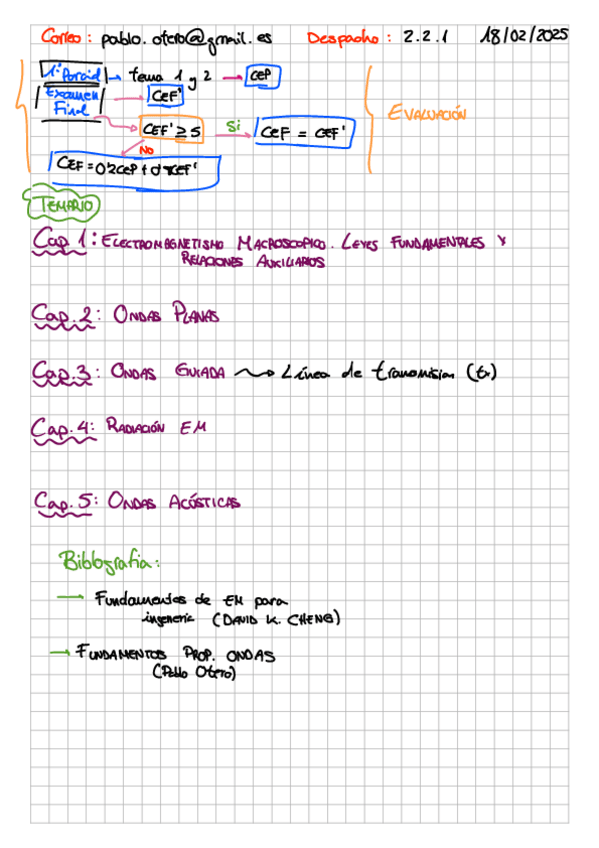 Correo : pablo.otero@gmail.es Despacho : 2.2.1 18/02/2025
1º Parcial → tema 1 y 2 → CEP
Examen Final → CEF'
EVALUACIÓN
CEF' ≥ 5 Si CEF = CEF'
NO
CEF = 0'2CEP + CEF'
TEMARIO
Cap 1: ELECTROMAGNETISMO MACROSCOPICO. LEYES FUNDAMENTALES Y
RELACIONES AUXILIARIOS
Cap.2: ONDAS PLANAS
Cap.3: ONDAS GUIADA ⟿ Línea de transmision (tx)
Cap.4: RADIACIÓN EM
Cap.5: ONDAS ACÓSTICAS
Bibliografia:
→ Fundamentos de EM para
ingeneria (DAVID K. CHENG)
→ FUNDAMENTOS PROP. ONDAS
(Pablo Otero)